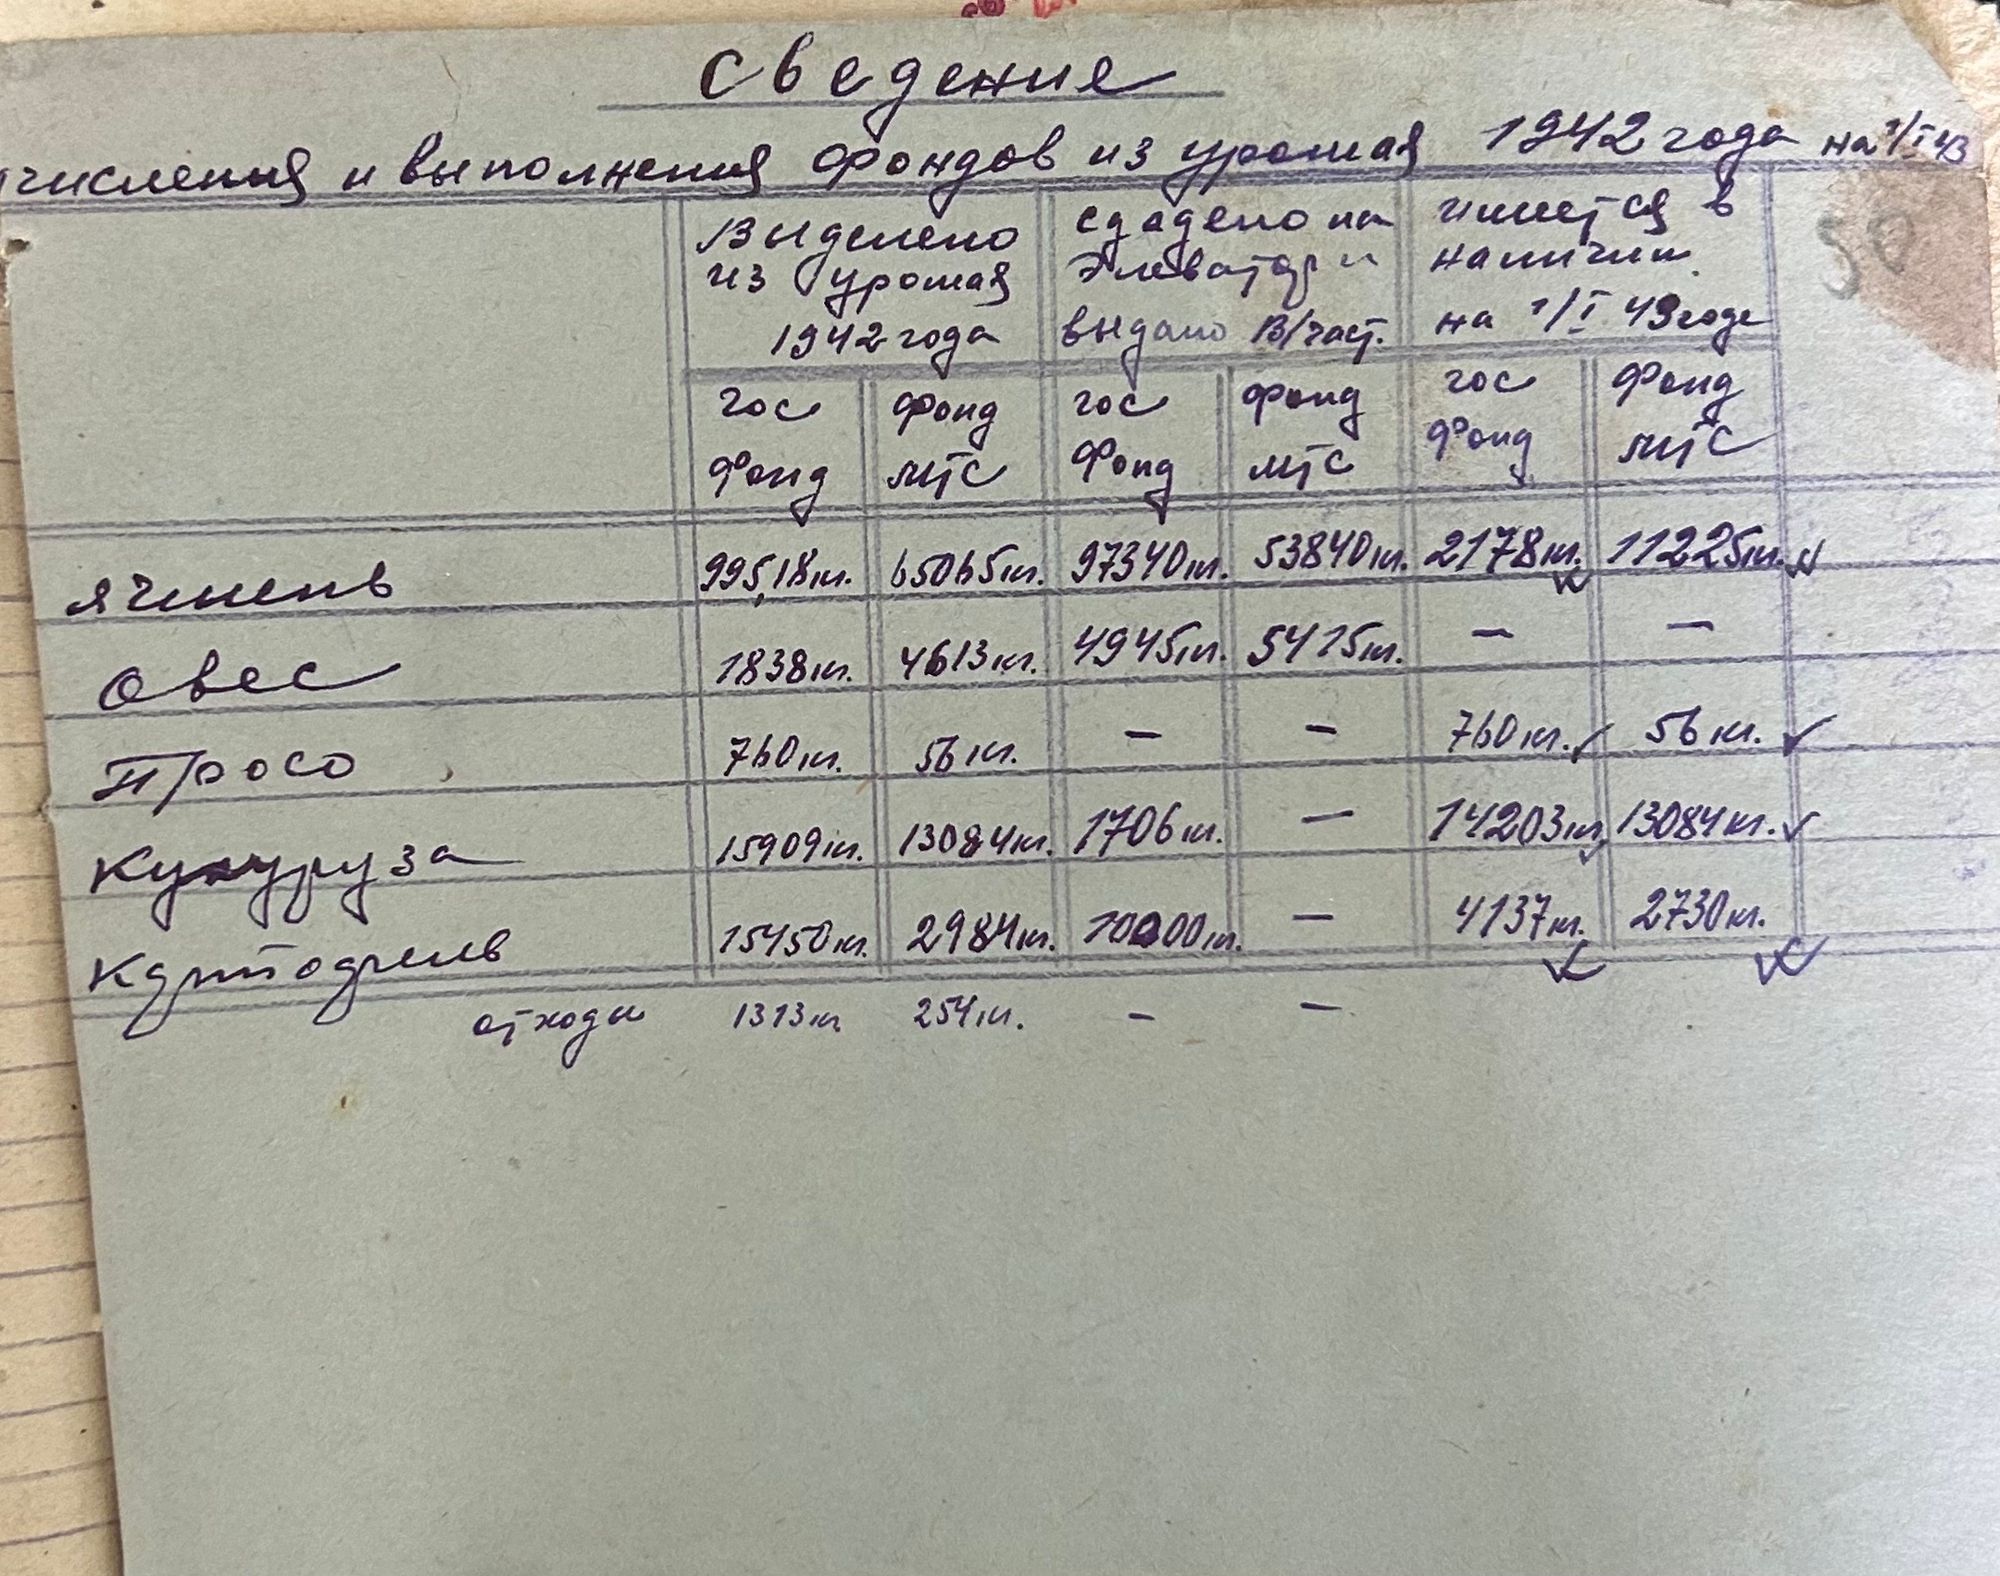 Сведение
числения и выполнения фондов из урожая 1942 года на 1/I 43
30
Выделено из урожая 1942 года
сдадено на элеватор и выдано в/част.
имеется в наличии на 1/I 43 годе
гос фонд фонд мтс гос фонд фонд мтс гос фонд фонд мтс
ячмень 995,18кг. 65065кг. 97340кг. 53840кг. 2178кг. 11225кг.
овес 1838кг. 4613кг. 4945кг. 5415кг. — —
просо 760кг. 56кг. — — 760кг. 56кг.
кукуруза 15909кг. 13084кг. 1706кг. — 14203кг. 13084кг.
картофель 15450кг. 2984кг. 10000кг. — 4137кг. 2730кг.
отходы 1313кг 254кг. — —